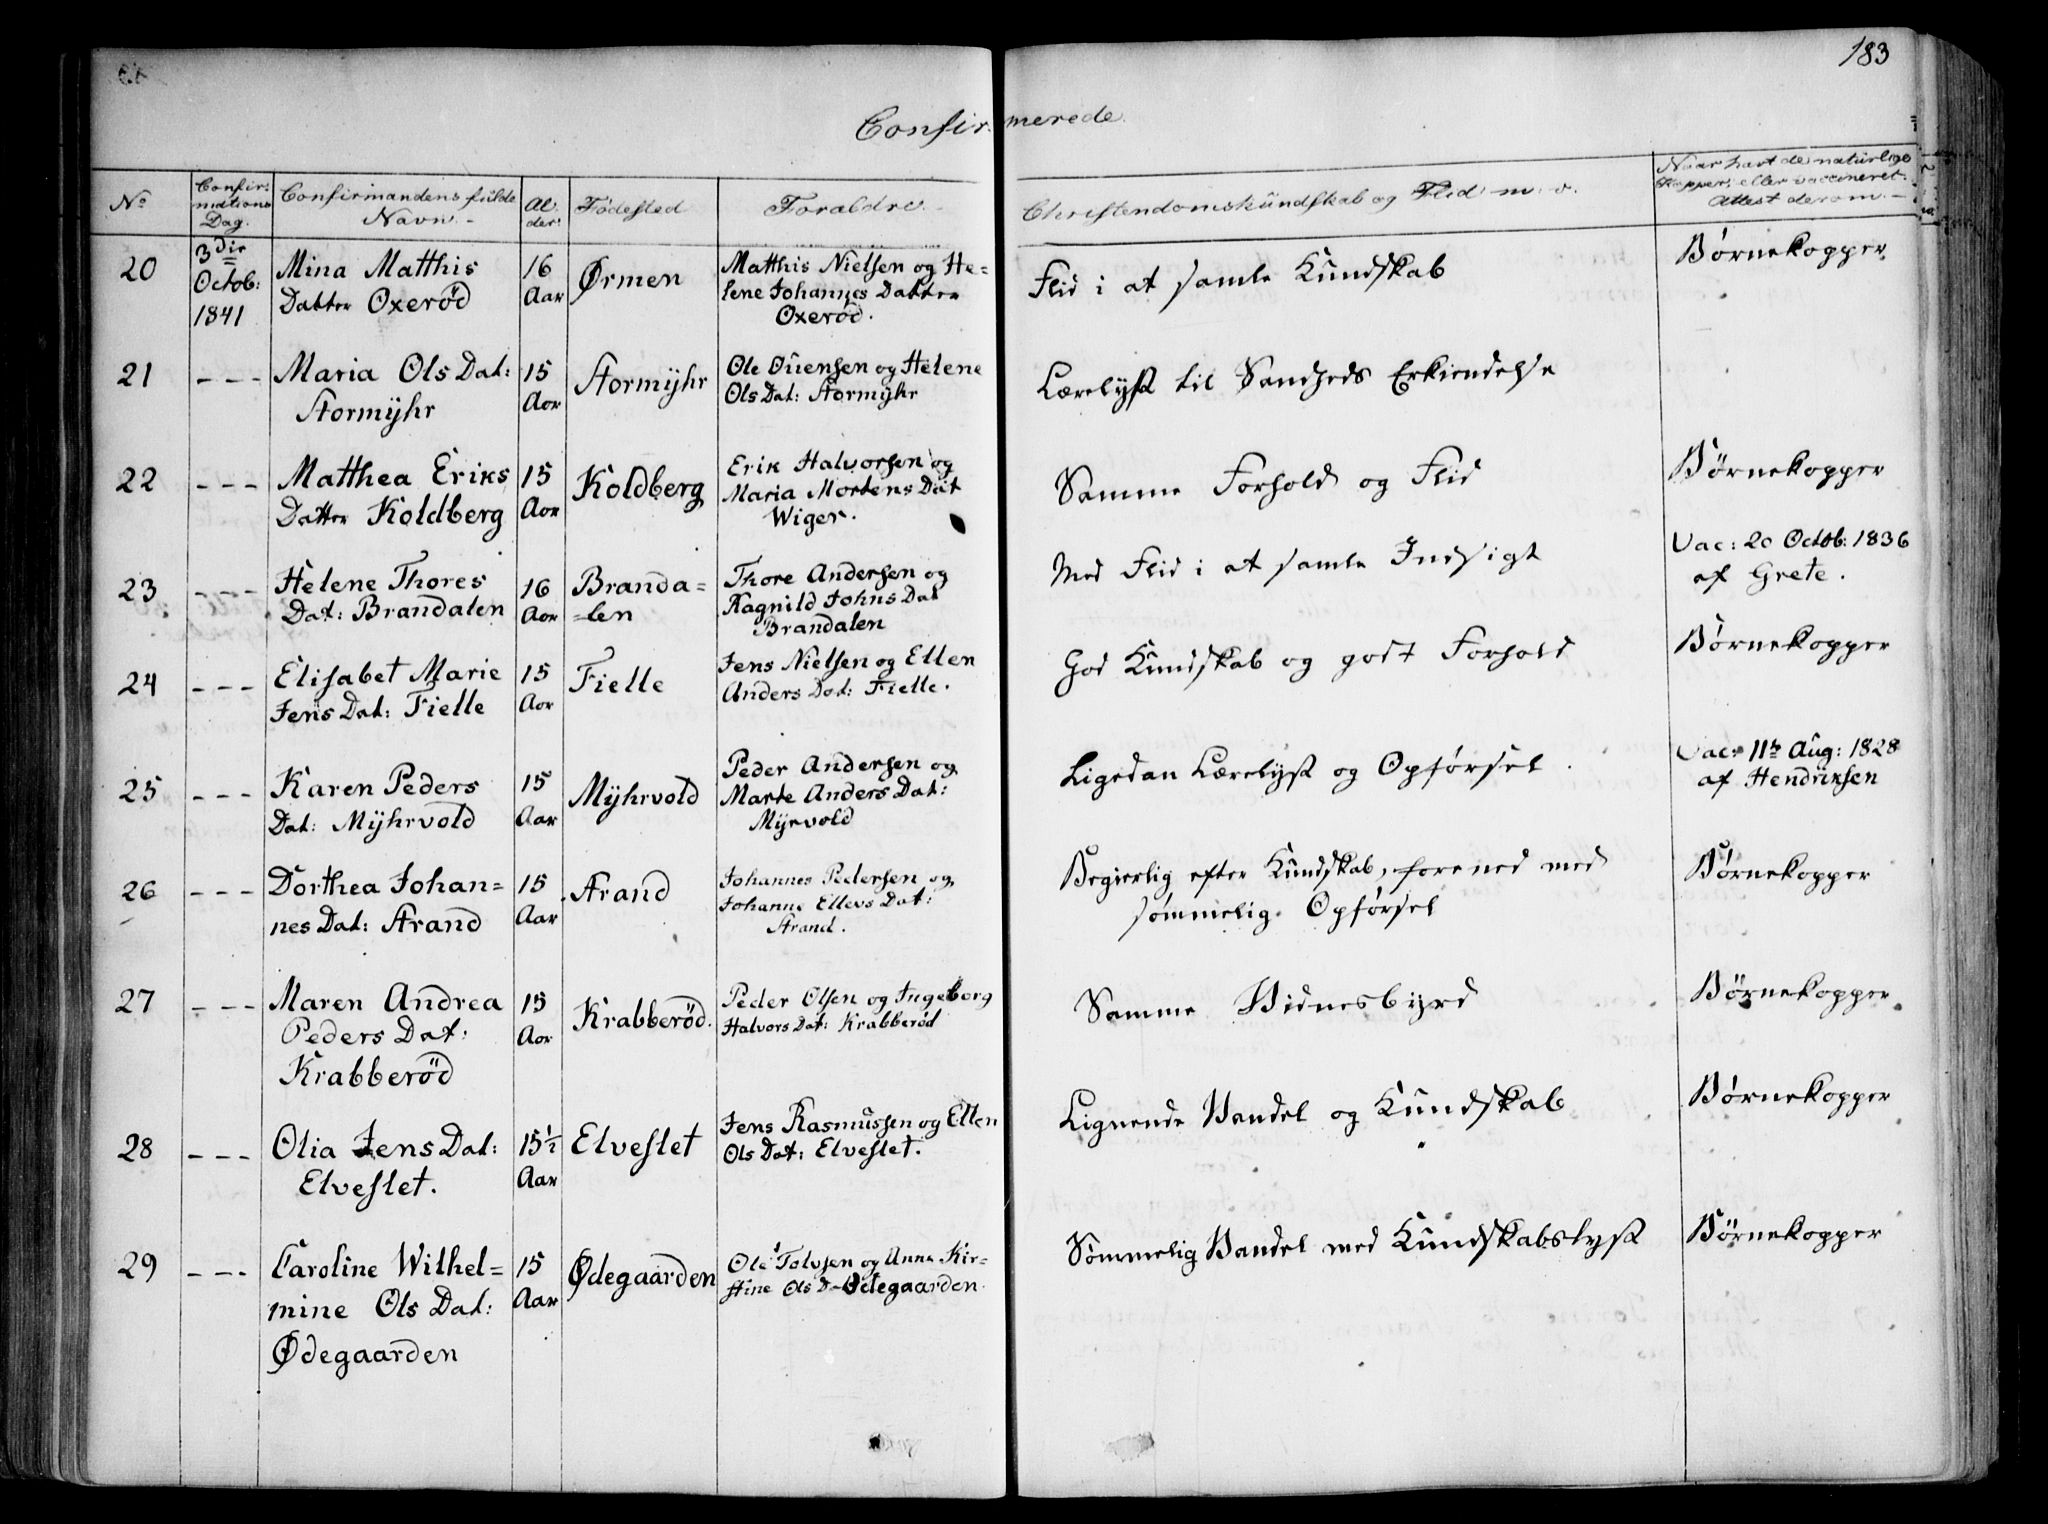 183
Confirmerede.
No Confirmations Dag. Confirmandens fulde Navn. Alder Fødested Forældre. Christendomskundskab og Flid m. v. Naar havt de naturlige Kopper eller vaccineret. Attest derom.
20 3die Octob: 1841 Mina Matthis Datter Oxerød 16 Aar Ørmen Matthis Nielsen og Helene Johannes Datter Oxerød. Flid i at samle Kundskab Børnekopper
21 - - - Maria Ols Dat: Stormyhr 15 Aar Stormyhr Ole Ouensen og Helene Ols Dat: Stormyhr Lærelyst til Sandheds Erkiendelse
22 - - - Matthea Eriks Datter Koldberg 15 Aar Koldberg Erik Halvorsen og Maria Mortens Dat Wiger. Samme Forhold og Flid Børnekopper
23 - - - Helene Thores Dat: Brandalen 16 Aar Branda=len Thore Andersen og Ragnild Johns Dat Brandalen Med Flid i at samle Indsigt Vac: 20 Octob: 1836 af Grete.
24 - - - Elisabet Marie Jens Dat: Fielle 15 Aar Fielle Jens Nielsen og Ellen Anders Dat: Fielle. God Kundskab og godt Forhold Børnekopper
25 - - - Karen Peders Dat: Myhrvold 15 Aar Myhrvold Peder Andersen og Marte Anders Dat: Myrvold Ligedan Lærelyst og Opførsel. Vac: 11te Aug: 1828 af Hendriksen
26 - - - Dorthea Johan=nes Dat: Strand 15 Aar Strand Johannes Pedersen og Johanne Ellevs Dat: Strand. Begierlig efter Kundskab, forened med sømmelig Opførsel Børnekopper
27 - - - Maren Andrea Peders Dat: Krabberød 15 Aar Krabberød. Peder Olsen og Ingeborg Halvors Dat: Krabberød Samme Vidnesbyrd Børnekopper
28 - - - Olia Jens Dat: Elveslet. 15½ Aar Elveslet Jens Rasmussen og Ellen Ols Dat: Elveslet. Lignende Vandel og Kundskab Børnekopper
29 - - - Caroline Wilhel=mine Ols Dat: Ødegaarden 15 Aar Ødegaarden Ole Tolvsen og Anne Kir=stine Ols D- Ødegaarden. Sømmelig Vandel med Kundskabslyst Børnekopper